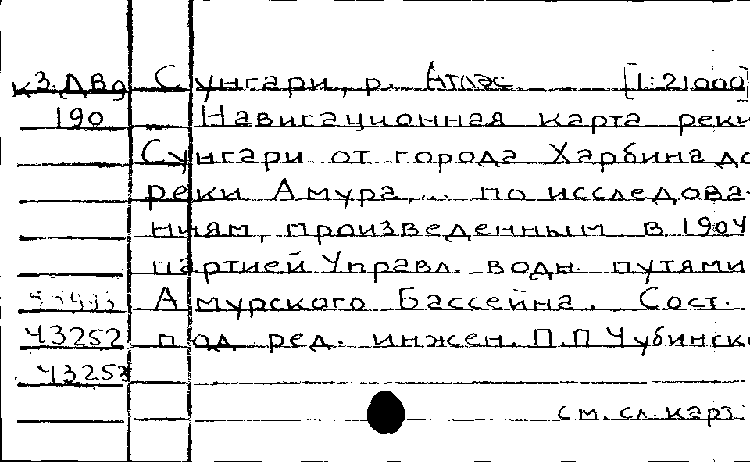 к3.ДВд Сунгари, р. Атлас [1:21000]
190 Навигационная карта реки
Сунгари от города Харбина до
реки Амура,.. по исследова-
ниям, произведенным в 1904
партией Управл. водн. путями
Амурского бассейна. Сост.
43252 под ред. инжен. П.П Чубинск
43252
см. сл. карт.